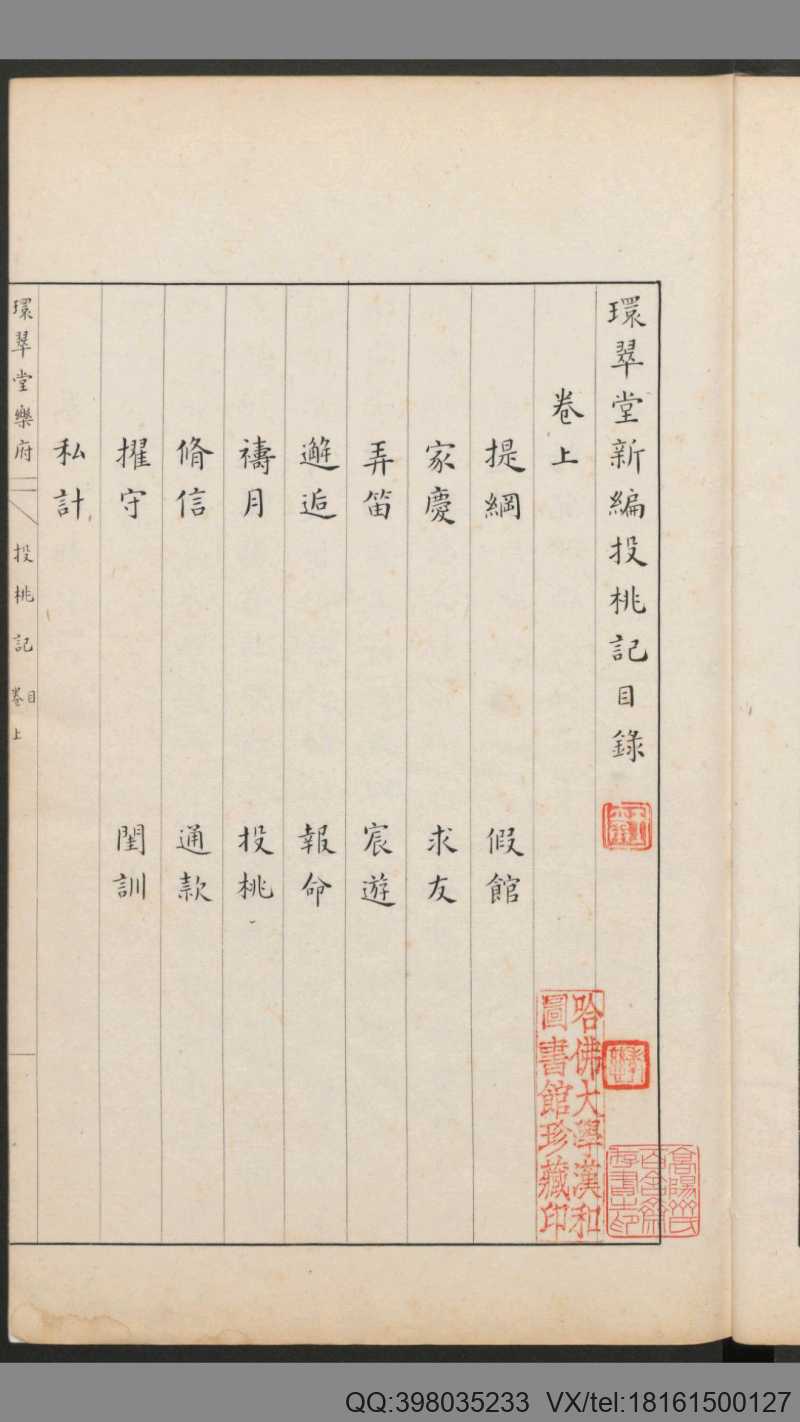 環翠堂新編投桃記目錄
卷上
提綱　假館
家慶　求友
弄笛　宸遊
邂逅　報命
禱月　投桃
脩信　通款
擢守　閨訓
私計
環翠堂樂府　投桃記　目卷上
哈佛大學漢和
圖書館珍藏印
QQ:398035233 VX/tel:18161500127